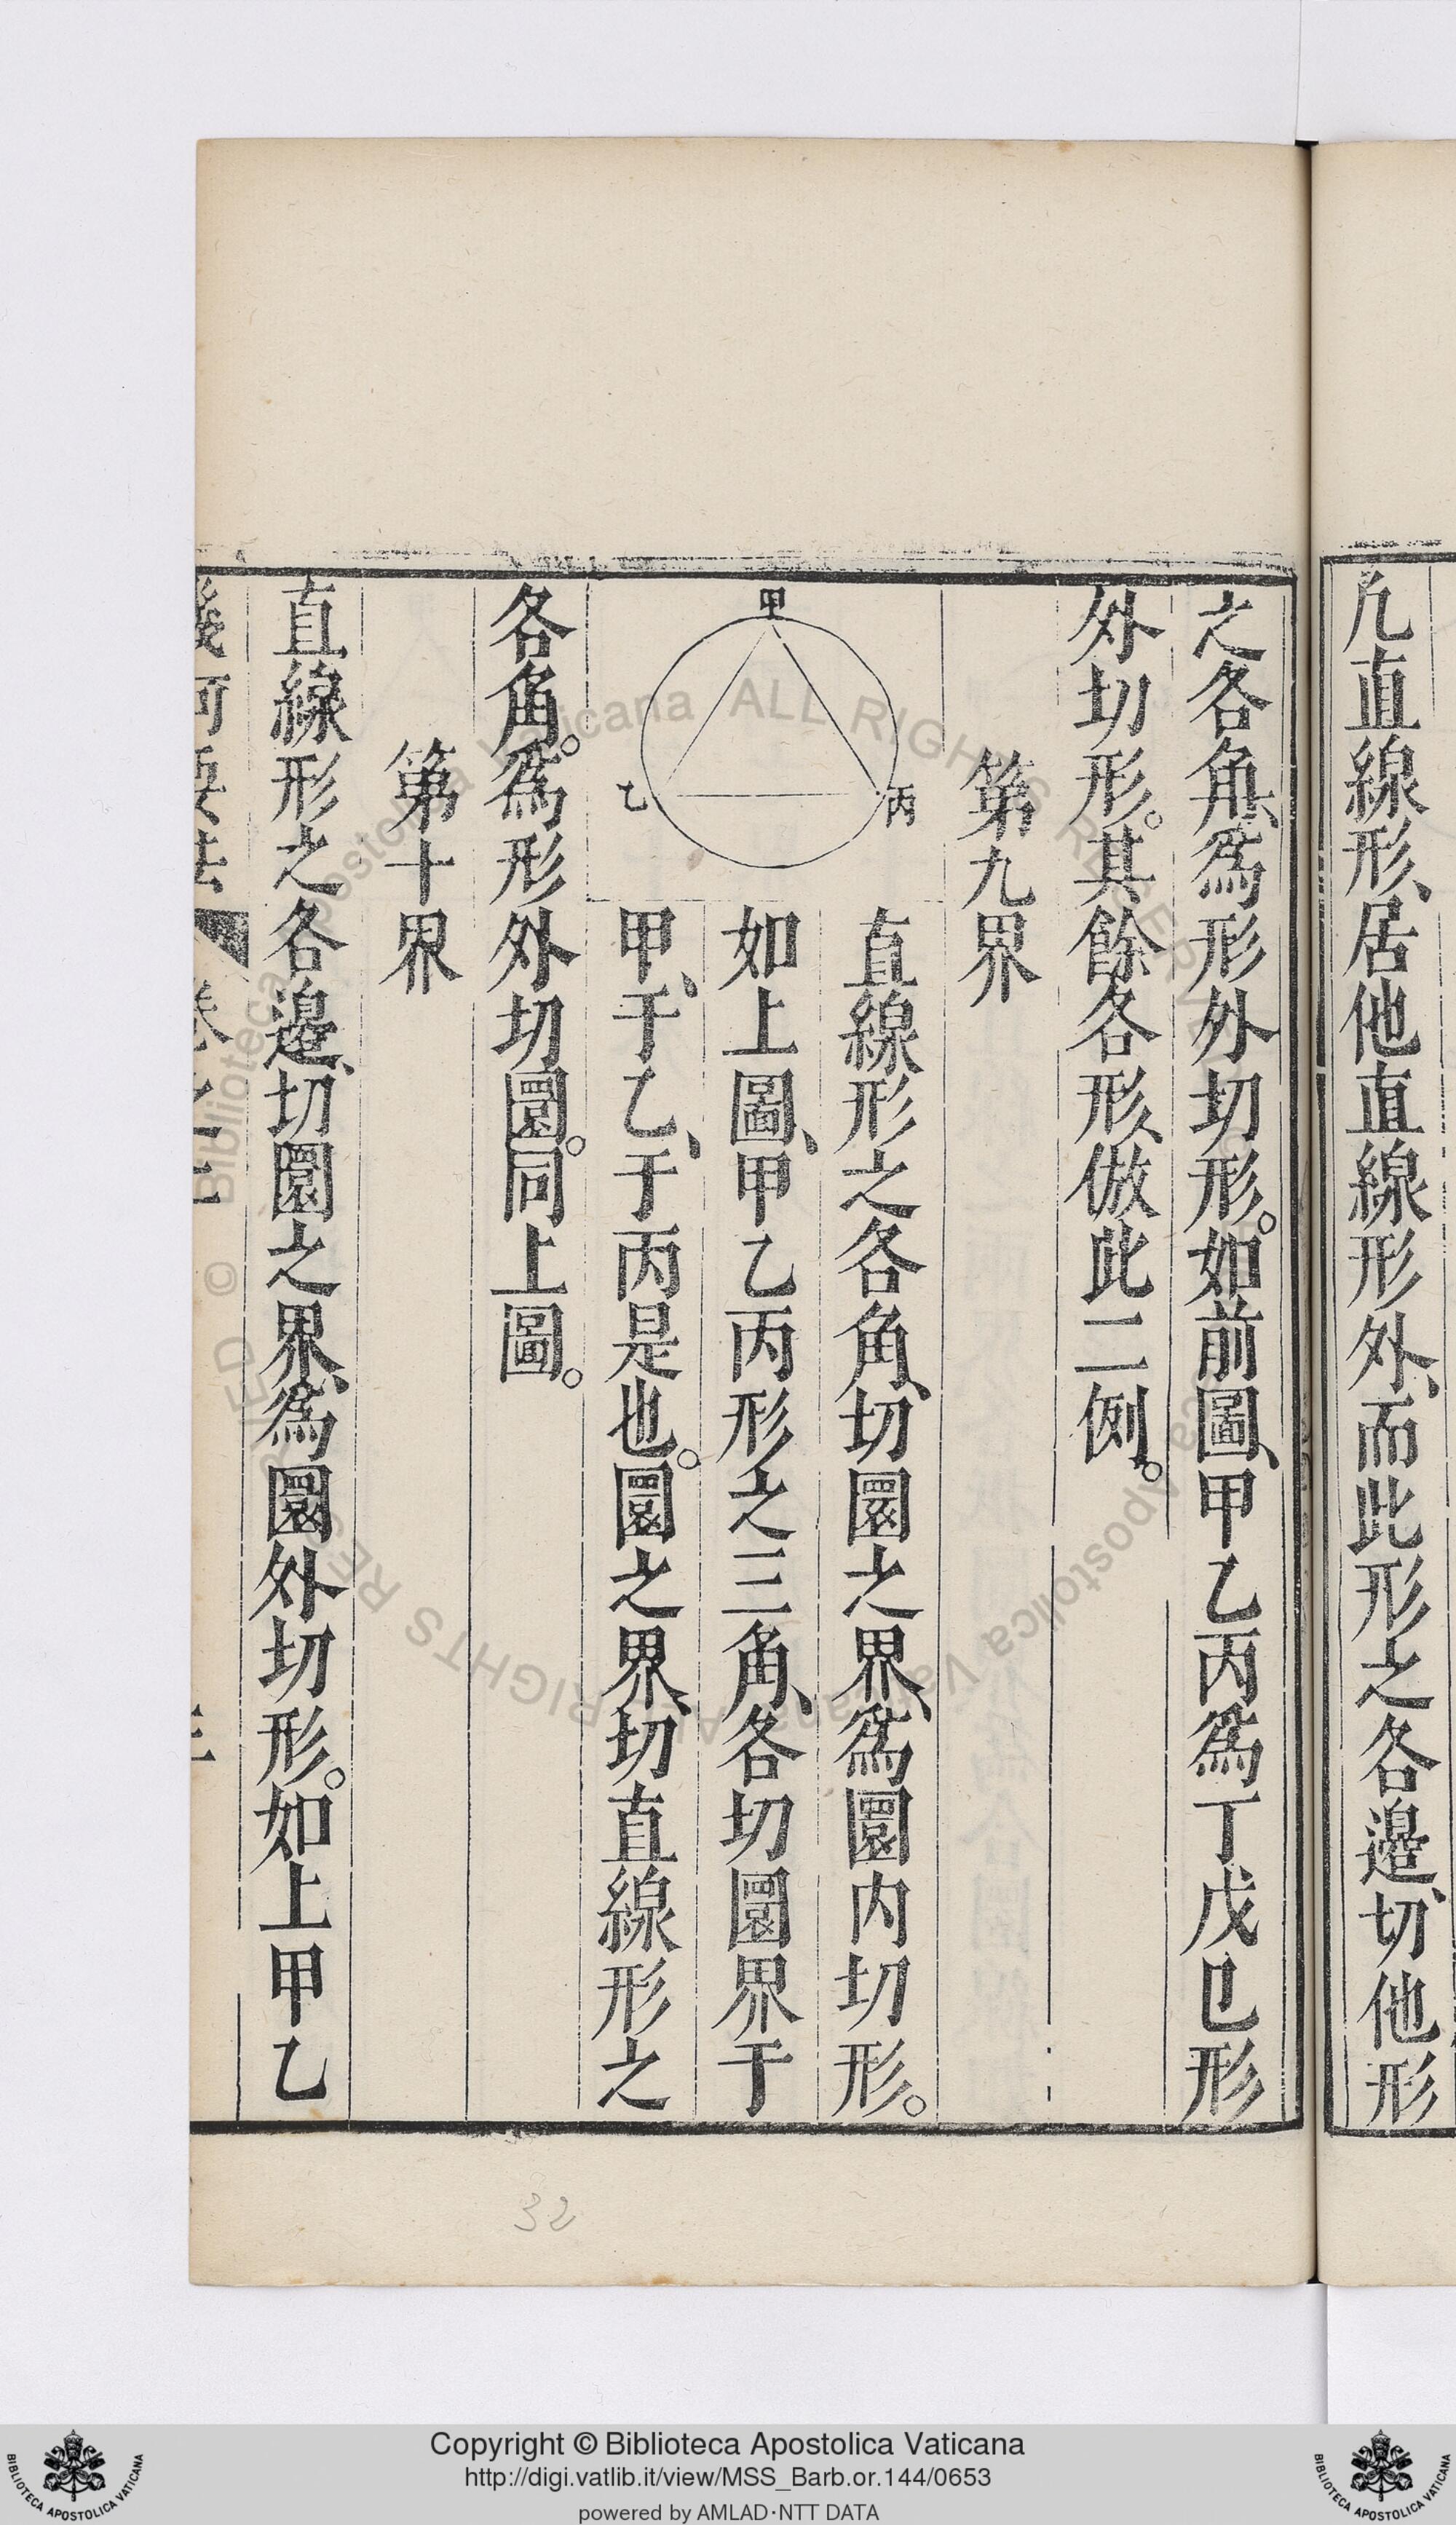 凢直線形、居他直線形外、而此形之各邉、切他形
之各角、爲形外切形。如前圖、甲乙丙爲丁戊巳形
外切形。其餘各形、倣此二例。
第九界
直線形之各角、切圜之界、爲圜内切形。
如上圖、甲乙丙形之三角、各切圜界于
甲、于乙、于丙是也。圜之界、切直線形之
各角。爲形外切圜。同上圖。
甲
乙
丙
第十界
直線形之各邉、切圜之界、爲圜外切形。如上甲乙
幾何要法
卷之
32
Copyright © Biblioteca Apostolica Vaticana
http://digi.vatlib.it/view/MSS_Barb.or.144/0653
powered by AMLAD·NTT DATA
BIBLIOTECA APOSTOLICA VATICANA
BIBLIOTECA APOSTOLICA VATICANA